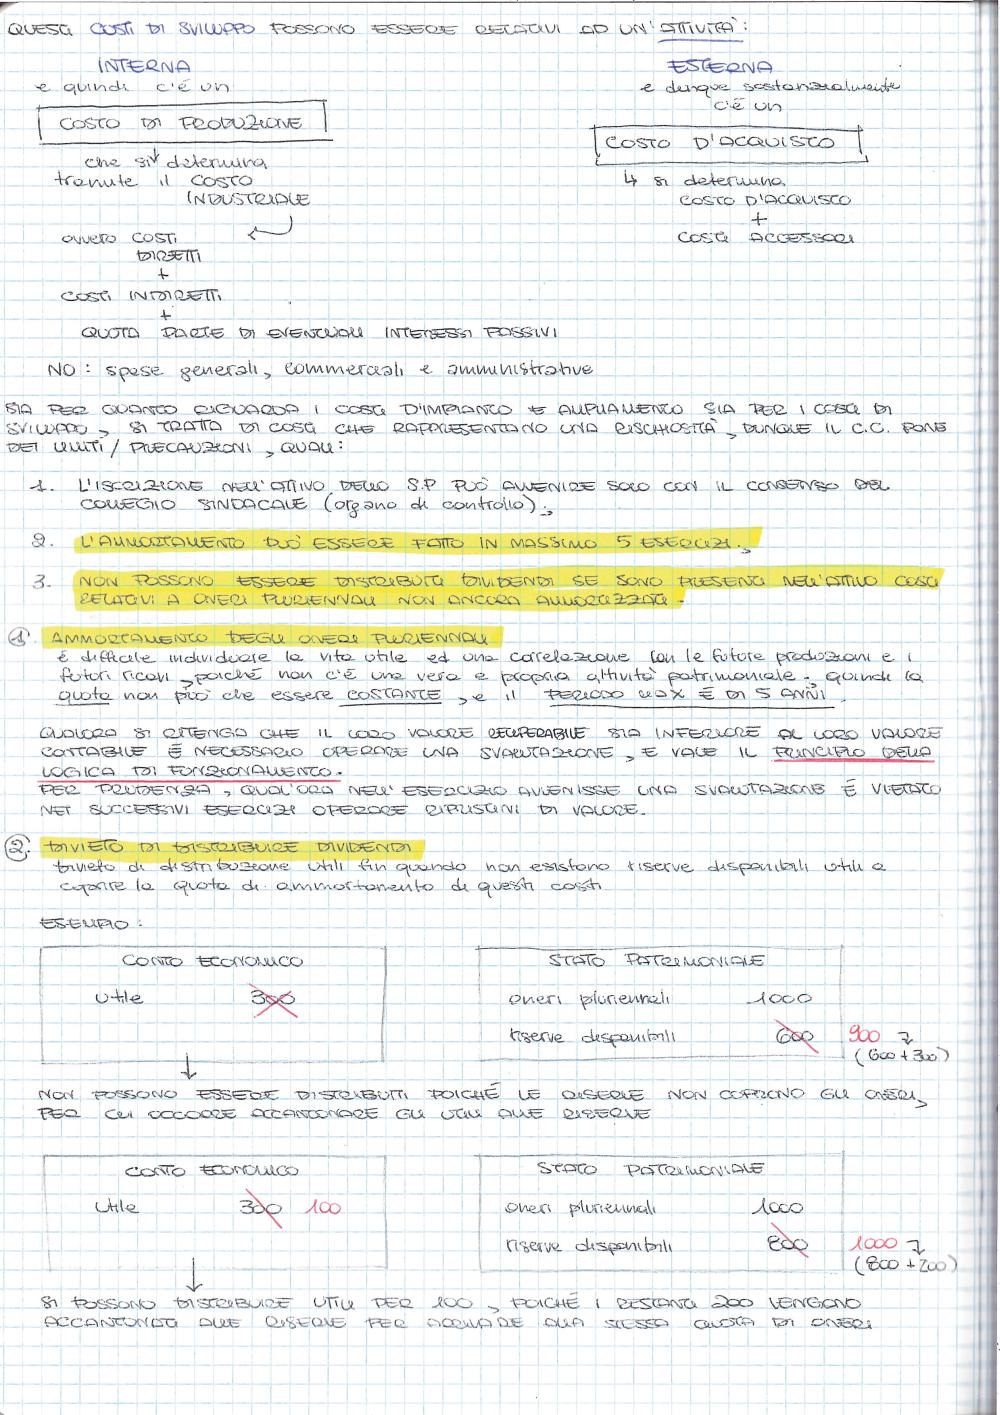 QUESTI COSTI DI SVILUPPO POSSONO ESSERE RELATIVI AD UN'ATTIVITÀ:
INTERNA
e quindi c'é un
COSTO DI PRODUZIONE
che si determina
tramite il COSTO
INDUSTRIALE
ovvero COSTI
DIRETTI
+
COSTI INDIRETTI
+
QUOTA PARTE DI EVENTUALI INTERESSI PASSIVI
ESTERNA
e dunque sostanzialmente
c'é un
COSTO D'ACQUISTO
↳ si determina
COSTO D'ACQUISTO
+
COSTI ACCESSORI
NO: spese generali, commerciali e amministrative
SIA PER QUANTO RIGUARDA I COSTI D'IMPIANTO E AMPLIAMENTO SIA PER I COSTI DI
SVILUPPO, SI TRATTA DI COSTI CHE RAPPRESENTANO UNA RISCHIOSITÀ, DUNQUE IL C.C. PONE
DEI LIMITI / PRECAUZIONI, QUALI:
1. L'ISCRIZIONE NELL'ATTIVO DELLO S.P PUÒ AVVENIRE SOLO CON IL CONSENSO DEL
COLLEGIO SINDACALE (organo di controllo);
2. L'AMMORTAMENTO PUÒ ESSERE FATTO IN MASSIMO 5 ESERCIZI;
3. NON POSSONO ESSERE DISTRIBUITI DIVIDENDI SE SONO PRESENTI NELL'ATTIVO COSTI
RELATIVI A ONERI PLURIENNALI NON ANCORA AMMORTIZZATI.
1. AMMORTAMENTO DEGLI ONERI PLURIENNALI
é difficile individuare la vita utile ed una correlazione con le future produzioni e i
futuri ricavi, poiché non c'é una vera e propria attività patrimoniale; quindi la
quota non può che essere COSTANTE, e il PERIODO MAX É DI 5 ANNI.
QUALORA SI RITENGA CHE IL LORO VALORE RECUPERABILE SIA INFERIORE AL LORO VALORE
CONTABILE É NECESSARIO OPERARE UNA SVALUTAZIONE, E VALE IL PRINCIPIO DELLA
LOGICA DI FUNZIONAMENTO.
PER PRUDENZA, QUAL'ORA NELL'ESERCIZIO AVVENISSE UNA SVALUTAZIONE É VIETATO
NEI SUCCESSIVI ESERCIZI OPERARE RIPRISTINI DI VALORE.
2. DIVIETO DI DISTRIBUIRE DIVIDENDI
Divieto di distribuzione utili fin quando non esistono riserve disponibili utili a
coprire la quota di ammortamento di questi costi
ESEMPIO:
CONTO ECONOMICO
utile 300
STATO PATRIMONIALE
oneri pluriennali 1000
riserve disponibili 600 900
(600+300)
NON POSSONO ESSERE DISTRIBUITI POICHÉ LE RISERVE NON COPRONO GLI ONERI,
PER CUI OCCORRE ACCANTONARE GLI UTILI ALLE RISERVE
CONTO ECONOMICO
utile 300 100
STATO PATRIMONIALE
oneri pluriennali 1000
riserve disponibili 800 1000
(800+200)
SI POSSONO DISTRIBUIRE UTILI PER 100, POICHÉ I RESTANTI 200 VENGONO
ACCANTONATI ALLE RISERVE PER ARRIVARE ALLA STESSA QUOTA DI ONERI